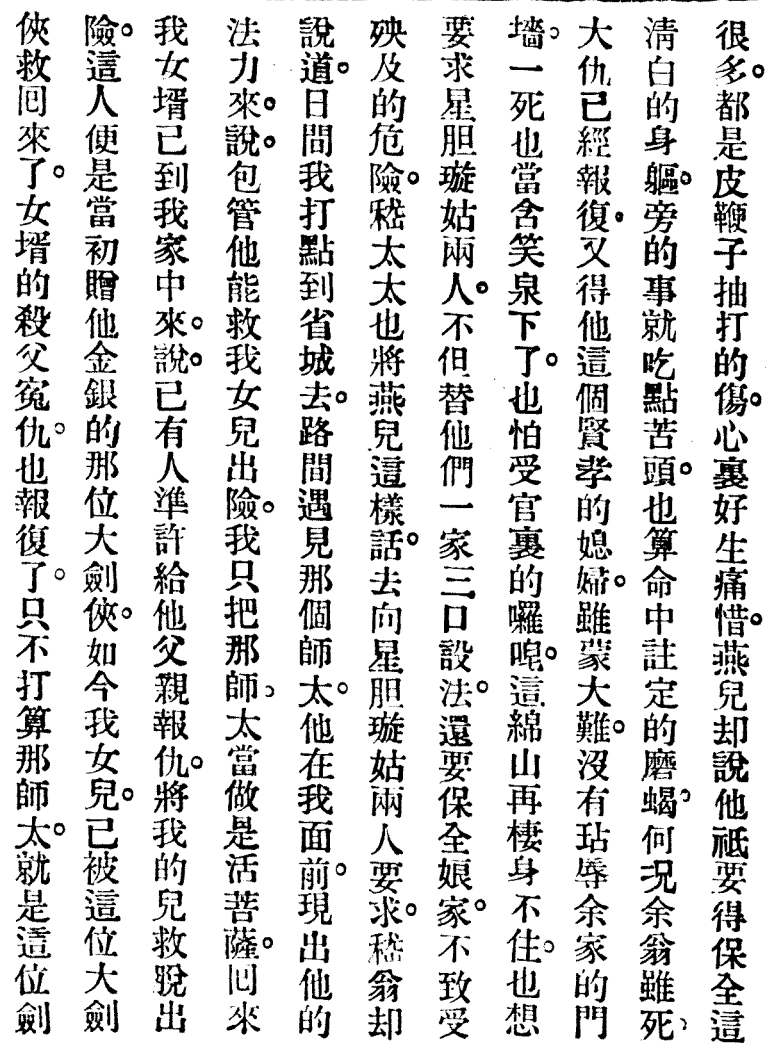 很多。都是皮鞭子抽打的傷。心裏好生痛惜。燕兒却說他祗要得保全這
清白的身軀。旁的事就吃點苦頭。也算命中註定的磨蝎。何况余翁雖死。
大仇已經報復。又得他這個賢孝的媳婦。雖蒙大難。沒有玷辱余家的門
墻。一死也當含笑泉下了。也怕受官裏的囉唣。這綿山再棲身不住。也想
要求星胆璇姑兩人。不但替他們一家三口設法。還要保全娘家。不致受
殃及的危險。嵇太太也將燕兒這樣話。去向星胆璇姑兩人要求。嵇翁却
說道。日間我打點到省城去。路間遇見那個師太。他在我面前。現出他的
法力來。說。包管他能救我女兒出險。我只把那師。太當做是活菩薩。囘來
我女壻已到我家中來。說。已有人準許給他父親報仇。將我的兒救脫出
險。這人便是當初贈他金銀的那位大劍俠。如今我女兒。已被這位大劍
俠救囘來了。女壻的殺父寃仇。也報復了。只不打算那師太。就是這位劍